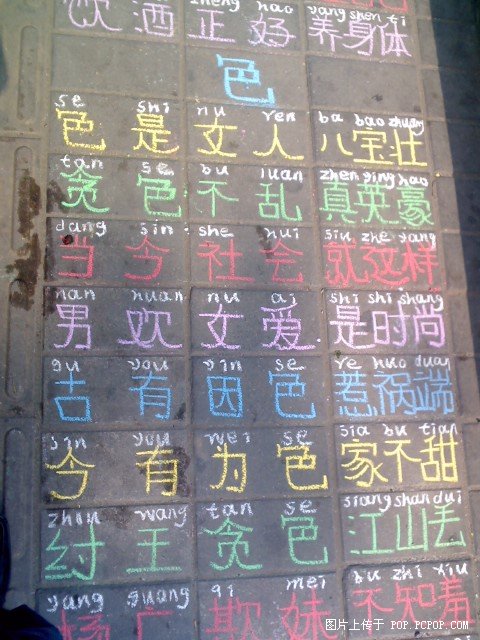 zheng hao yang shen ti
饮酒 正好 养身体
色
se shi nu ren ba bao zhuang
色是 女人 八宝壮
tan se bu luan zhen ying hao
贪色 不乱 真英豪
dang sin she hui siu zhe yang
当今 社会 就这样
nan huan nu ai shi shi shang
男欢 女爱 是时尚
gu you yin se re huo duan
古有 因色 惹祸端
sin you wei se sia bu tian
今有 为色 家不甜
zhou wang tan se siang shan dui
纣王 贪色 江山丢
yang guang qi mei bu zhi xiu
杨广 欺妹 不知羞
图片上传于 POP.PCPOP.COM